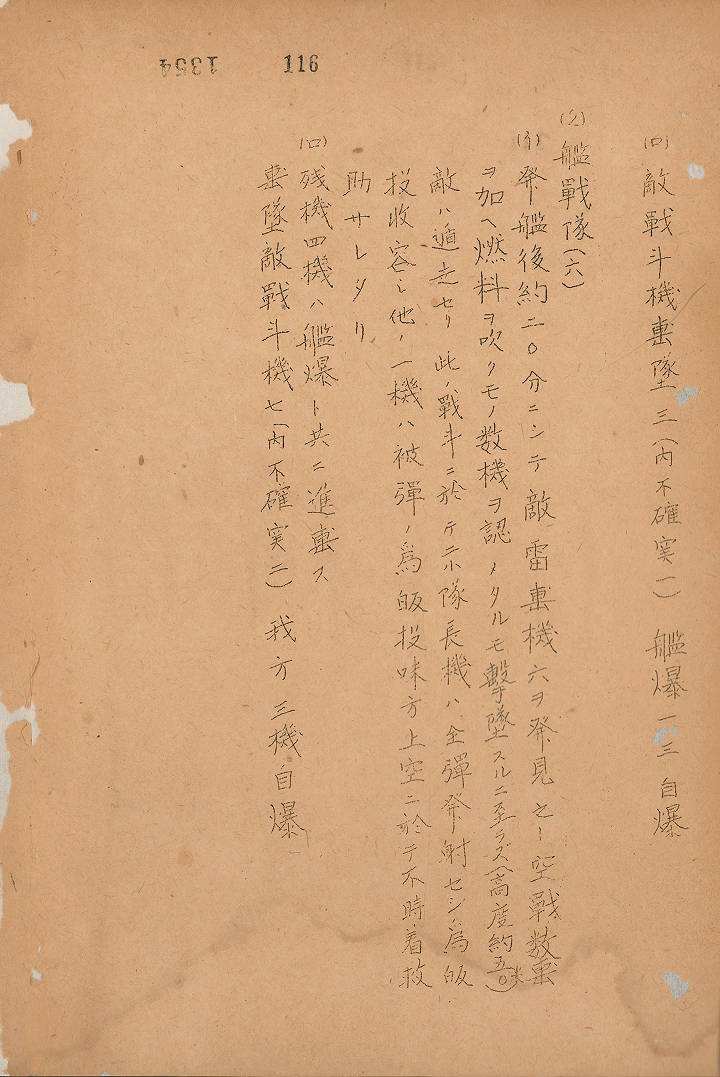 116
1354
(ロ) 敵戰斗機撃墜三(内不確実一) 艦爆一三自爆
(2) 艦戰隊(六)
(イ) 発艦後約二〇分ニシテ敵雷撃機六ヲ発見之ト空戰数撃
ヲ加ヘ燃料ヲ吹クモノ数機ヲ認メタルモ撃墜スルニ至ラズ(高度約五〇〇米)
敵ハ遁走セリ 此ノ戰斗ニ於ケ二小隊長機ハ全彈発射セシ為皈
投收容シ他ノ一機ハ被彈ノ為皈投味方上空ニ於テ不時着救
助サレタリ
(ロ) 残機四機ハ艦爆ト共ニ進撃ス
撃墜敵戰斗機七(内不確実二) 我方三機自爆